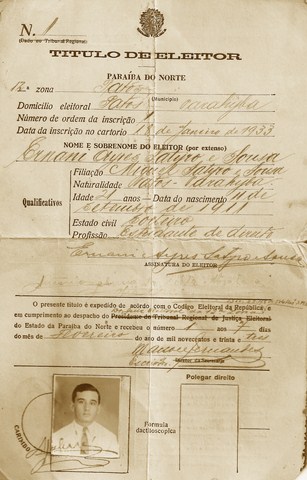 N. 1
(Dado no Tribunal Regional)
TITULO DE ELEITOR
PARAÍBA DO NORTE
13ª zona Patos
(Municipio)
Domicilio eleitoral Patos Parahyba
Número de ordem da inscrição 1
Data da inscrição no cartorio 18 de Janeiro de 1933
NOME E SOBRENOME DO ELEITOR (por extenso)
Ernani Ayres Satyro e Sousa
Qualificativos
Filiação Miguel Satyro e Sousa
Naturalidade Patos - Parahyba
Idade 21 anos - Data do nascimento 11 de
Setembro de 1911
Estado civil solteiro
Profissão Estudante de direito
Ernani Ayres Satyro e Sousa
ASSINATURA DO ELEITOR
O presente titulo é expedido de acôrdo com o Codigo Eleitoral da República, e
em cumprimento ao despacho do Presidente do Tribunal Regional de Justiça Eleitoral
do Estado da Paraíba do Norte e recebeu o número 1 aos dias
do mês de Fevereiro do ano de mil novecentos e trinta e tres
Polegar direito
Formula
dactiloscopica
CARIMBO